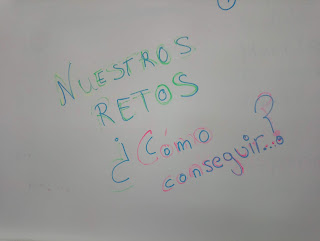 NUESTROS
RETOS
¿Cómo
conseguir...?